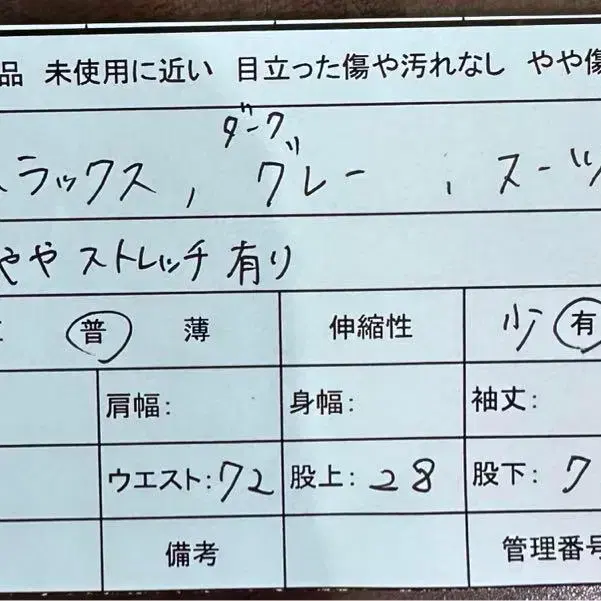 品 未使用に近い 目立った傷や汚れなし やや傷
ダーク
トラックス, グレー , スーツ
やや ストレッチ 有り
普 薄 伸縮性 少 有
肩幅: 身幅: 袖丈:
ウエスト:72 股上:28 股下:7
備考 管理番号